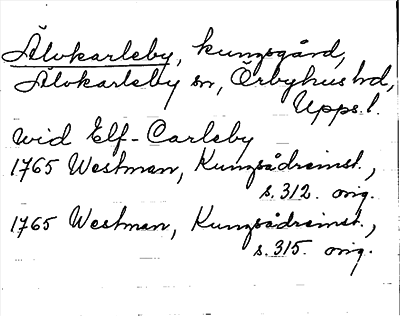 Älvkarleby, kungsgård,
Älvkarleby sn, Örbyhus hd,
Upps. l.
wid Elf-Carleby
1765 Westman, Kungsådreinst.,
s. 312. orig.
1765 Westman, Kungsådreinst.,
s. 315. orig.